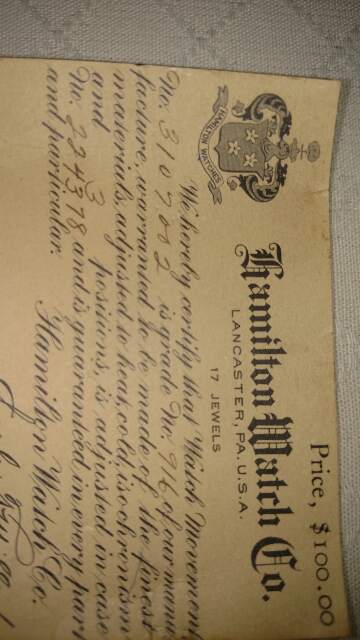 Price, $100.00
HAMILTON WATCHES
Hamilton Watch Co.
LANCASTER, PA., U.S.A.
17 JEWELS
We hereby certify that Watch Movement
No. 3107002 is grade No. 916 of our manu-
facture, warranted to be made of the finest
materials, adjusted to heat, cold, isochronism
and 3 positions, is adjusted in case
No. and is guaranteed in every part
and particular.
Hamilton Watch Co.